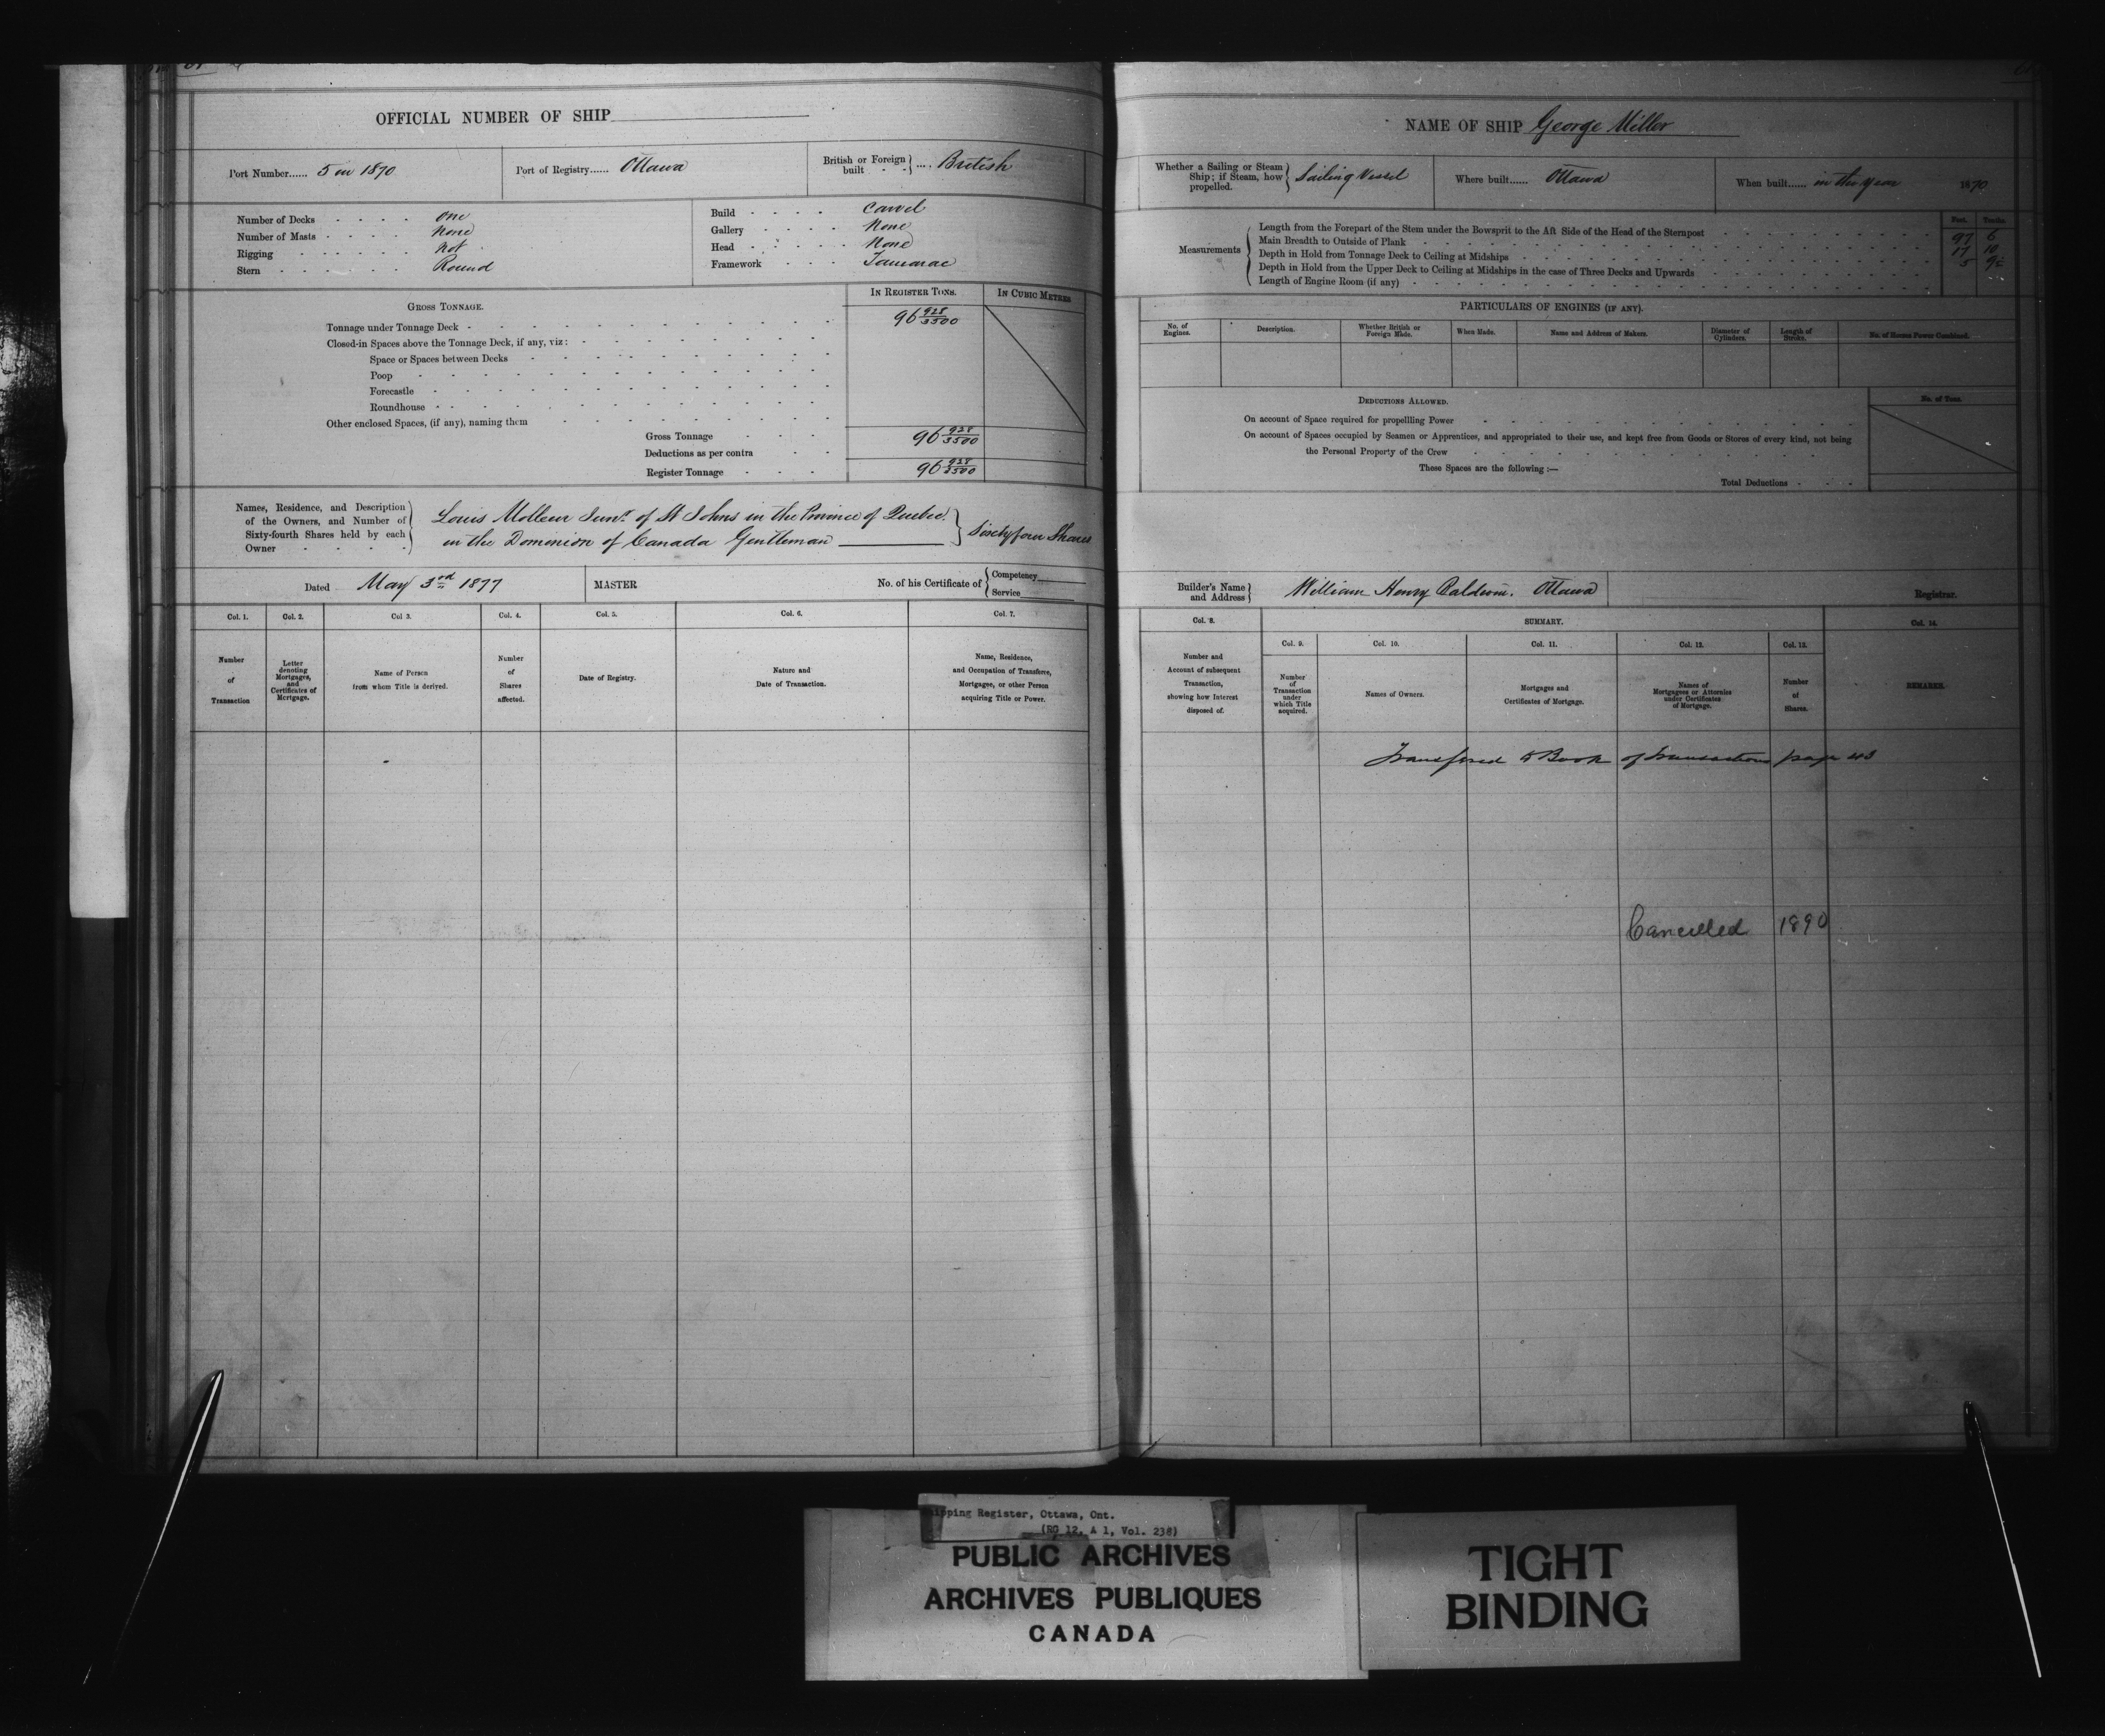 OFFICIAL NUMBER OF SHIP
Port Number...... 5 in 1870
Port of Registry...... Ottawa
British or Foreign built - - } .... British
Number of Decks - - - - one
Number of Masts - - - - None
Rigging - - - - - not
Stern - - - - - - Round
Build - - - - Carvel
Gallery - - - - None
Head - - - - - None
Framework - - - Tamarac
GROSS TONNAGE.
IN REGISTER TONS.
IN CUBIC METRES
Tonnage under Tonnage Deck - 96 928/3500
Closed-in Spaces above the Tonnage Deck, if any, viz:
Space or Spaces between Decks
Poop
Forecastle
Roundhouse
Other enclosed Spaces, (if any), naming them
Gross Tonnage - - - 96 928/3500
Deductions as per contra - -
Register Tonnage - - - 96 928/3500
Names, Residence, and Description of the Owners, and Number of Sixty-fourth Shares held by each Owner - - - -
Louis Molleur Junr. of St Johns in the Province of Quebec.
in the Dominion of Canada Gentleman } Sixtyfour Shares
Dated May 3rd 1877
MASTER
No. of his Certificate of { Competency
Service
Col. 1.
Col. 2.
Col 3.
Col. 4.
Col. 5.
Col. 6.
Col. 7.
Number of Transaction
Letter denoting Mortgages, and Certificates of Mortgage.
Name of Person from whom Title is derived.
Number of Shares affected.
Date of Registry.
Nature and Date of Transaction.
Name, Residence, and Occupation of Transferee, Mortgagee, or other Person acquiring Title or Power.
NAME OF SHIP George Miller
Whether a Sailing or Steam Ship; if Steam, how propelled. } Sailing Vessel
Where built...... Ottawa
When built...... in the year 1870
Measurements
Feet. Tenths.
Length from the Forepart of the Stem under the Bowsprit to the Aft Side of the Head of the Sternpost 97 6
Main Breadth to Outside of Plank 17 10
Depth in Hold from Tonnage Deck to Ceiling at Midships 5
Depth in Hold from the Upper Deck to Ceiling at Midships in the case of Three Decks and Upwards
Length of Engine Room (if any)
PARTICULARS OF ENGINES (IF ANY).
No. of Engines.
Description.
Whether British or Foreign Made.
When Made.
Name and Address of Makers.
Diameter of Cylinders.
Length of Stroke.
No. of Horses Power Combined.
DEDUCTIONS ALLOWED.
No. of Tons.
On account of Space required for propelling Power
On account of Spaces occupied by Seamen or Apprentices, and appropriated to their use, and kept free from Goods or Stores of every kind, not being
the Personal Property of the Crew
These Spaces are the following :—
Total Deductions - - -
Builder's Name and Address } William Henry Baldwin. Ottawa
Registrar.
Col. 8.
SUMMARY.
Col. 14.
Col. 9.
Col. 10.
Col. 11.
Col. 12.
Col. 13.
Number and Account of subsequent Transaction, showing how Interest disposed of.
Number of Transaction under which Title acquired.
Names of Owners.
Mortgages and Certificates of Mortgage.
Names of Mortgagees or Attornies under Certificates of Mortgage.
Number of Shares.
REMARKS.
Transfered to Book of Transactions page 43
Cancelled 1890
Shipping Register, Ottawa, Ont.
(RG 12, A 1, Vol. 238)
PUBLIC ARCHIVES
ARCHIVES PUBLIQUES
CANADA
TIGHT
BINDING